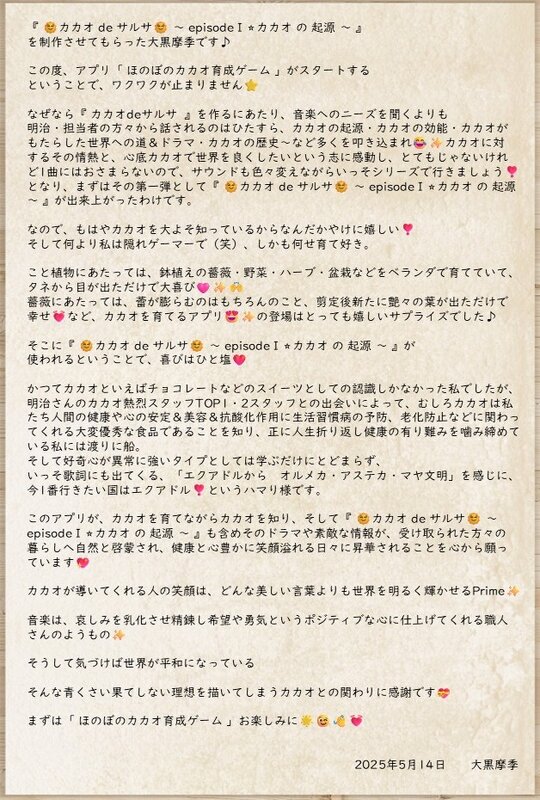 『 😊カカオ de サルサ😊 ～ episode I ⭐︎カカオ の 起源 ～ 』
を制作させてもらった大黒摩季です♪
この度、アプリ「 ほのぼのカカオ育成ゲーム 」がスタートする
ということで、ワクワクが止まりません⭐
なぜなら『 カカオdeサルサ 』を作るにあたり、音楽へのニーズを聞くよりも
明治・担当者の方々から話されるのはひたすら、カカオの起源・カカオの効能・カカオが
もたらした世界への道＆ドラマ・カカオの歴史〜など多くを叩き込まれ😂✨カカオに対
するその情熱と、心底カカオで世界を良くしたいという志に感動し、とてもじゃないけれ
ど1曲にはおさまらないので、サウンドも色々変えながらいっそシリーズで行きましょう❣️
となり、まずはその第一弾として『 😊カカオ de サルサ😊 ～ episode I ⭐︎カカオ の 起源
～ 』が出来上がったわけです。
なので、もはやカカオを大よそ知っているからなんだかやけに嬉しい❣️
そして何より私は隠れゲーマーで（笑）、しかも何せ育て好き。
こと植物にあたっては、鉢植えの薔薇・野菜・ハーブ・盆栽などをベランダで育てていて、
タネから目が出ただけで大喜び💓✨🙌
薔薇にあたっては、蕾が膨らむのはもちろんのこと、剪定後新たに艶々の葉が出ただけで
幸せ💓など、カカオを育てるアプリ😍✨の登場はとっても嬉しいサプライズでした♪
そこに『 😊カカオ de サルサ😊 ～ episode I ⭐︎カカオ の 起源 ～ 』が
使われるということで、喜びはひと塩❤️
かつてカカオといえばチョコレートなどのスイーツとしての認識しかなかった私でしたが、
明治さんのカカオ熱烈スタッフTOP1・2スタッフとの出会いによって、むしろカカオは私
たち人間の健康や心の安定＆美容＆抗酸化作用に生活習慣病の予防、老化防止などに関わっ
てくれる大変優秀な食品であることを知り、正に人生折り返し健康の有り難みを噛み締めて
いる私には渡りに船。
そして好奇心が異常に強いタイプとしては学ぶだけにとどまらず、
いっそ歌詞にも出てくる、「エクアドルから　オルメカ・アステカ・マヤ文明」を感じに、
今1番行きたい国はエクアドル❣️というハマり様です。
このアプリが、カカオを育てながらカカオを知り、そして『 😊カカオ de サルサ😊 ～
episode I ⭐︎カカオ の 起源 ～ 』も含めそのドラマや素敵な情報が、受け取られた方々の
暮らしへ自然と啓蒙され、健康と心豊かに笑顔溢れる日々に昇華されることを心から願っ
ています💖
カカオが導いてくれる人の笑顔は、どんな美しい言葉よりも世界を明るく輝かせるPrime✨
音楽は、哀しみを乳化させ精錬し希望や勇気というポジティブな心に仕上げてくれる職人
さんのようもの✨
そうして気づけば世界が平和になっている
そんな青くさい果てしない理想を描いてしまうカカオとの関わりに感謝です💝
まずは「 ほのぼのカカオ育成ゲーム 」お楽しみに🌟😆👏💓
2025年5月14日　　大黒摩季